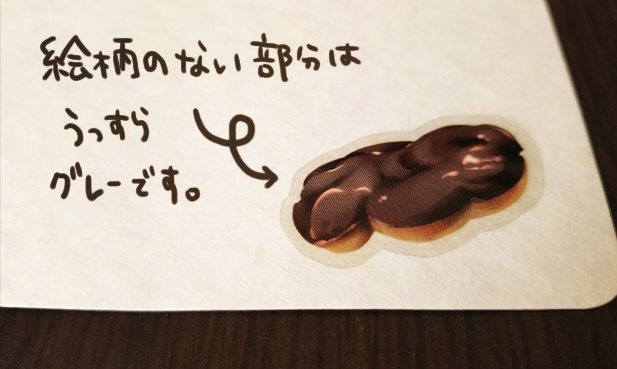 絵柄のない部分は
うっすら
グレーです。